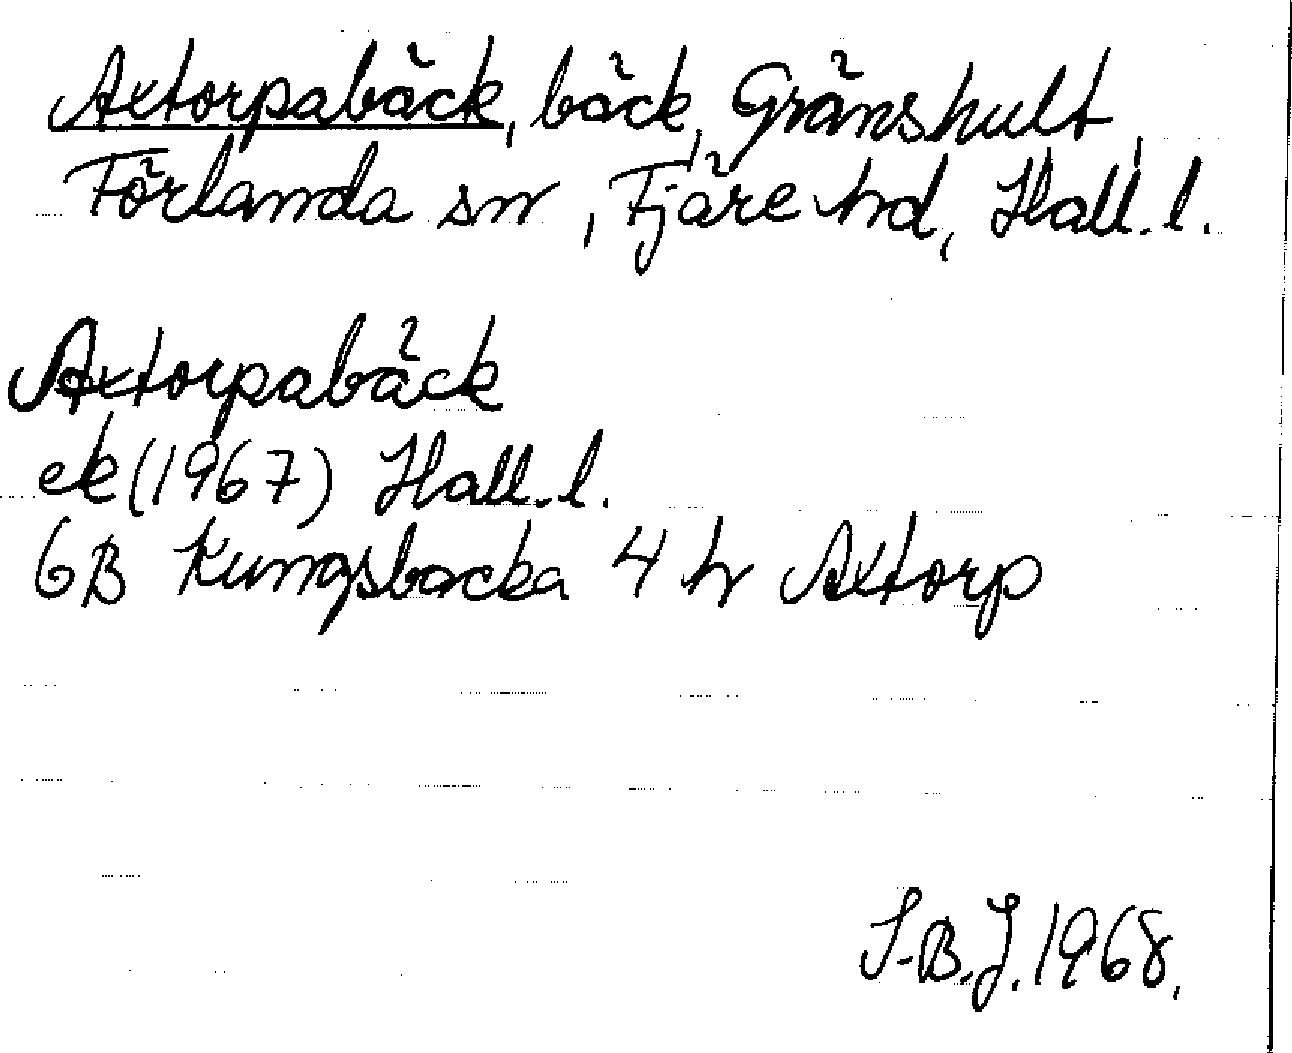 Axtorpabäck, bäck, Gränshult,
Förlanda sn, Fjäre hd, Hall. l.
Axtorpabäck
ek (1967) Hall. l.
6B Kungsbacka 4 h Axtorp
S-B.J. 1968.